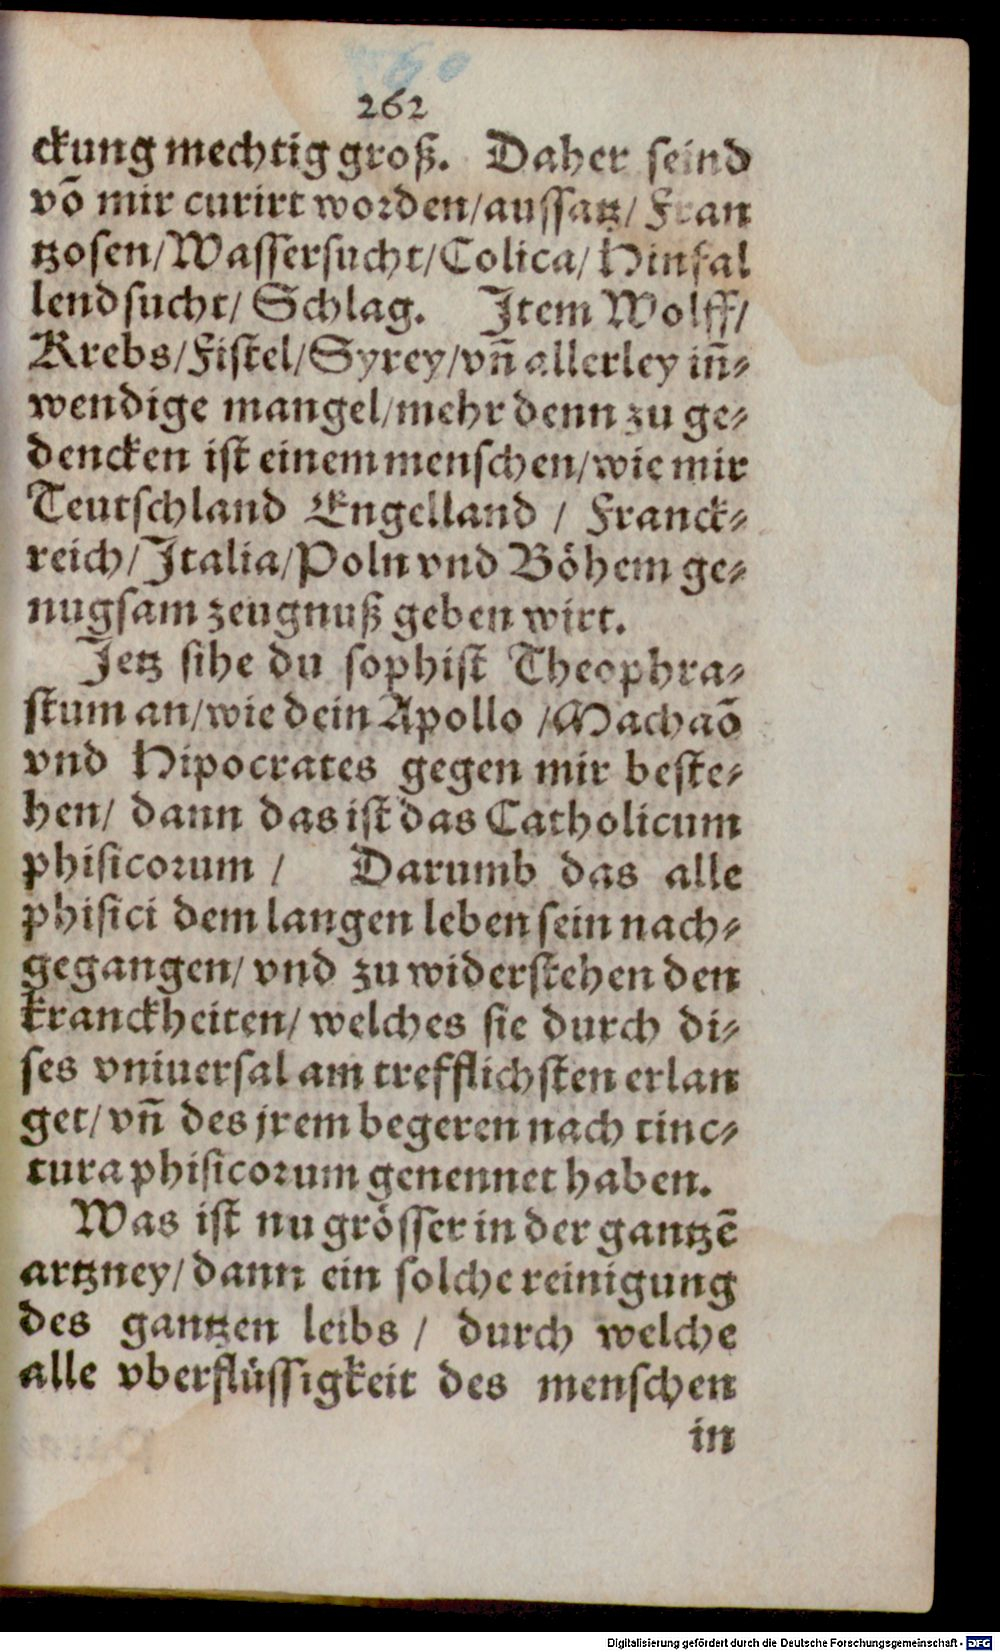 262
ckung mechtig groß. Daher seind
võ mir curirt worden/aussatz/ Fran
tzosen/Wassersucht/Colica/ Hinfal
lendsucht/ Schlag. Item Wolff/
Krebs/Fistel/Syrey/vñ allerley iñ⸗
wendige mangel/mehr denn zu ge⸗
dencken ist einem menschen/wie mir
Teutschland Engelland / Franck⸗
reich/Italia/Poln vnd Böhem ge⸗
nugsam zeugnuß geben wirt.
Jetz sihe du sophist Theophra⸗
stum an/wie dein Apollo /Machaõ
vnd Hipocrates gegen mir beste⸗
hen/ dann das ist das Catholicum
phisicorum / Darumb das alle
phisici dem langen leben sein nach⸗
gegangen/ vnd zu widerstehen den
kranckheiten/ welches sie durch di⸗
ses vniuersal am trefflichsten erlan
get/ vñ des jrem begeren nach tinc⸗
tura phisicorum genennet haben.
Was ist nu grösser in der gantzẽ
artzney/ dann ein solche reinigung
des gantzen leibs / durch welche
alle vberflüssigkeit des menschen
in
Digitalisierung gefördert durch die Deutsche Forschungsgemeinschaft - DFG